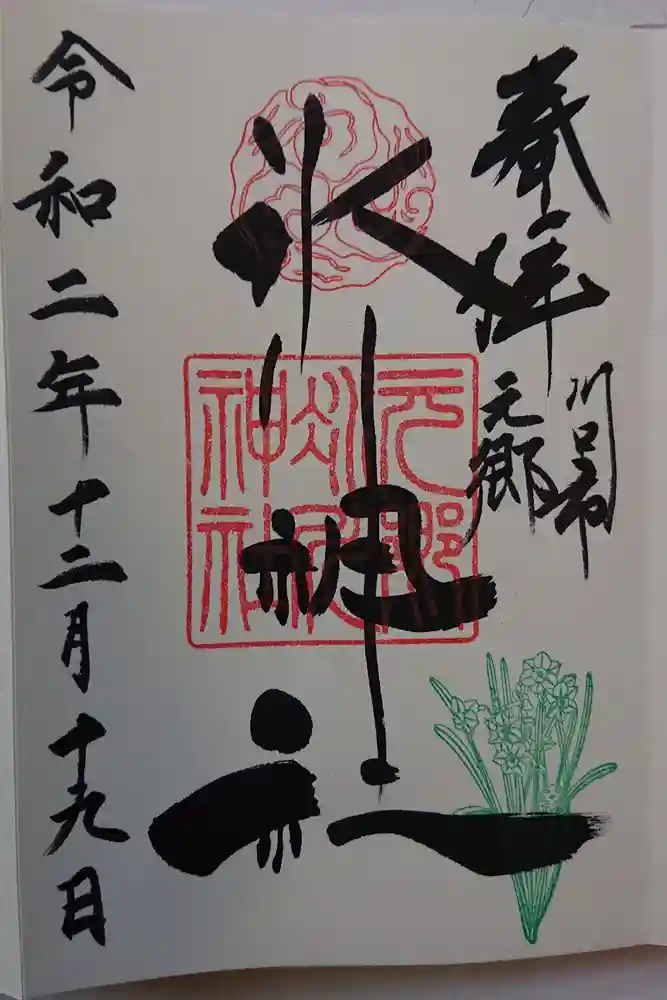 奉拝
川口市
元郷
氷川神社
元郷
氷川
神社
令和二年十二月十九日